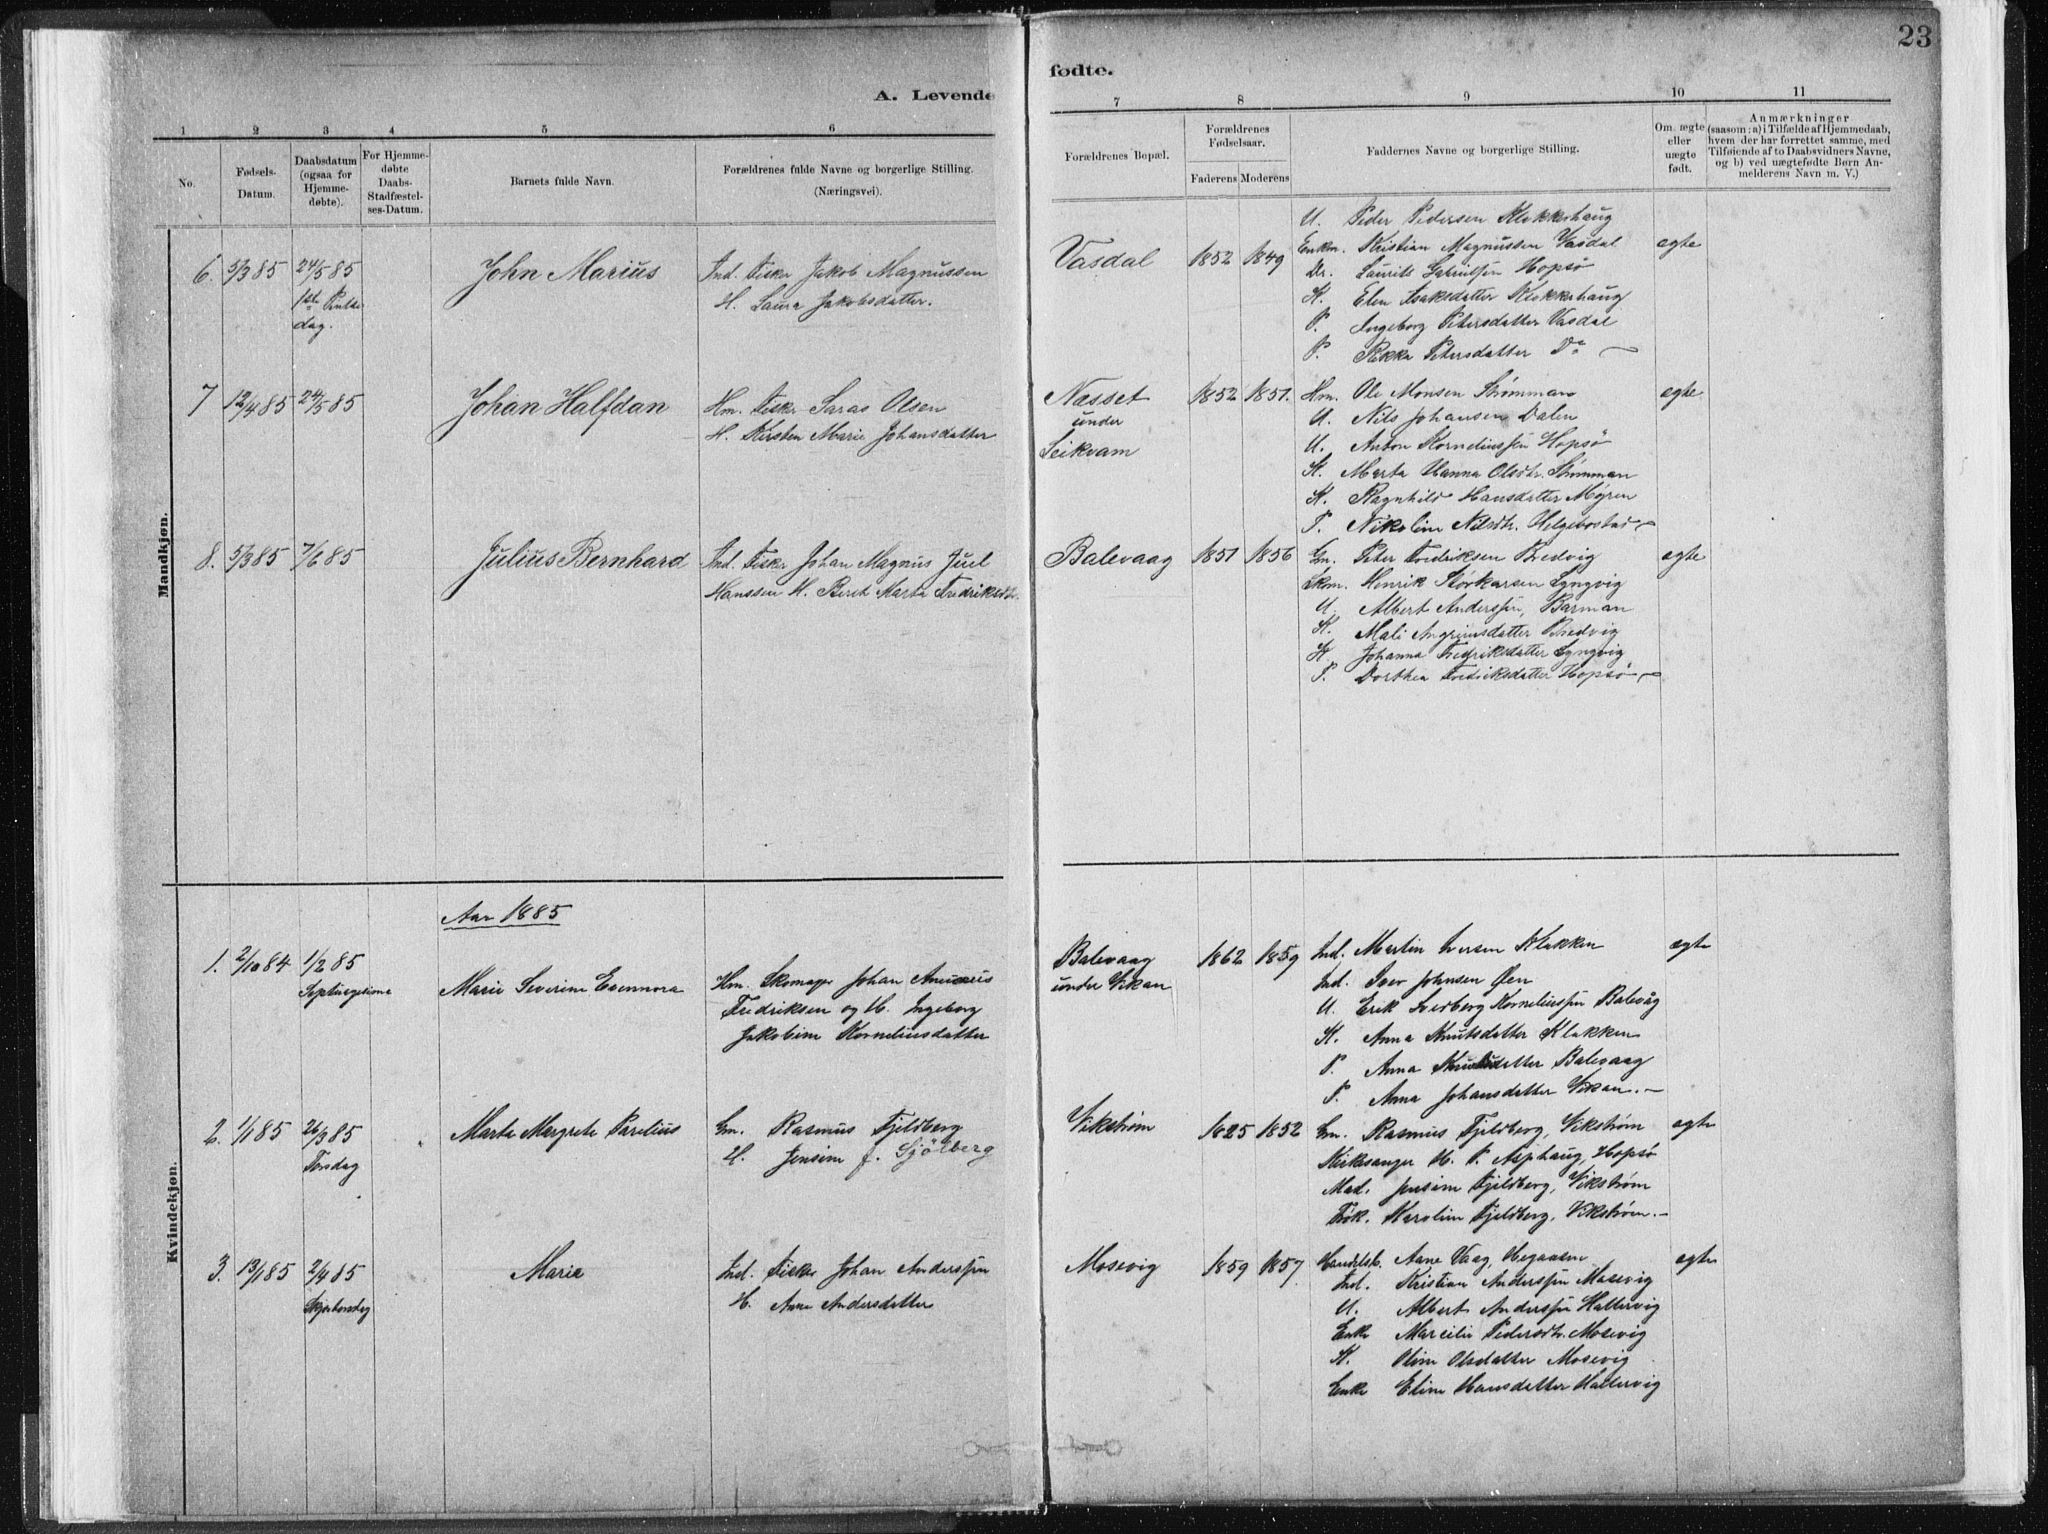 23
A. Levende
fødte.
1 2 3 4 5 6 7 8 9 10 11
No.
Fødsels-
Datum.
Daabsdatum
(ogsaa for
Hjemme-
døbte).
For Hjemme-
døbte
Daabs-
Stadfæstel-
ses-Datum.
Barnets fulde Navn.
Forældrenes fulde Navne og borgerlige Stilling.
(Næringsvei).
Forældrenes Bopæl.
Forældrenes
Fødselsaar.
Faderens Moderens
Faddernes Navne og borgerlige Stilling.
Om. ægte
eller
uægte
født.
Anmærkninger
(saasom: a) i Tilfælde af Hjemmedaab,
hvem der har forrettet samme, med
Tilføiende af to Daabsvidners Navne,
og b) ved uægtefødte Børn An-
melderens Navn m. V.)
Mandkjøn.
6. 5/3 85
24/5 85
1ste Pintse
dag.
John Marius
Ind. Fisker Jakob Magnussen
H. Laura Jakobsdatter.
Vasdal
1852 1849
U. Peder Pedersen Klokkerhaug
Enkm. Kristian Magnussen Vasdal
Dr. Lauritz Hopsø
K. Elen Isaksdatter Klokkerhaug
P. Ingeborg Petersdatter Vasdal
P. Rikka Petersdatter Do —
egte
7 12/4 85 24/5 85
Johan Halfdan
Hm. Fisker Saras Olsen
H. Kirsten Marie Johansdatter
Nasset
under
Leikvam
1852 1851.
Hm. Ole Monsen Strømman
U. Nils Johansen Dalen
U. Anton Korneliussen Hopsø
K. Marta Hanna Olsdtr. Strømman
K. Ragnhild Hansdatter Myren
P. Nikoline Nilsdtr. Helgebostad —
egte
8. 5/3 85 7/6 85
Julius Bernhard
Ind. Fisker Johan Magnus Juel
Hanssen H. Beret Marta Fredriksdtr.
Balevaag
1851 1856
Gm. Peter Fredriksen Bredvig
Enkm. Henrik Størkarsen Lyngvig
U. Albert Anderssen, Barman
K. Mali Angrimsdatter Bredvig
K. Johanna Fredriksdatter Lyngvig
P. Dorthea Fredriksdatter Hopsø —
egte
Kvindekjøn.
Aar 1885
1. 2/10 84 1/2 85
Septuagesima
Marie Severine Evennora
Hm. Skomager Johan
Fredriksen og H. Ingeborg
Jakobine Korneliusdatter
Balevaag
under Vikan
1862 1859
Ind. Martin Iversen Klakken
Ind. Iver Johnsen Øen
U. Erik Sverdberg Korneliussen Balevåg
K. Anna Knutsdatter Klakken
P. Anna Knutsdatter Balevaag
P. Anna Johansdatter Vikan. —
ægte
2. 1/1 85 26/3 85
Torsdag
Marta Margrete Parelius
Gm. Rasmus Fjeldberg
H. Jensine f. Sjölberg
Vikstrøm
1825 1852
Gm. Rasmus Fjeldberg, Vikstrøm
Kirkesanger H. P. Asphaug, Hopsø
Mad. Jensine Fjeldberg, Vikstrøm
Frøk. Karoline Fjeldberg, Vikstrøm. —
egte
3. 13/1 85 2/4 85
Skjærtorsdag
Marie
Ind. Fisker Johan Anderssen
H. Anne Andersdatter
Mosevig
1859 1857
Handelsb. Aane Vaag,
Ind. Kristian Anderssen Mosevig
U. Albert Anderssen Hallervig
Enke Marcelie Pedersdtr. Mosevig
K. Oline Olsdatter Mosevig
Enke Eline Hansdatter Hallervig
egte